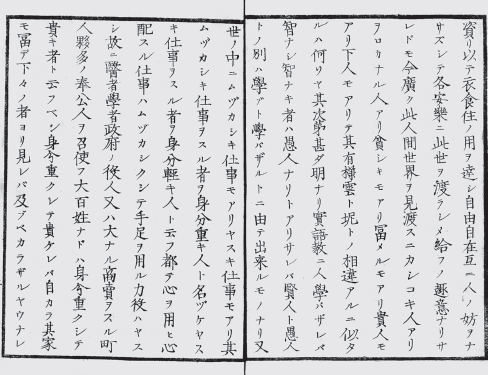 資リ以テ衣食住ノ用ヲ達シ自由自在互ニ人ノ妨ヲナ
サズシテ各安樂ニ此世ヲ渡ラシメ給フノ趣意ナリサ
レドモ今廣ク此人間世界ヲ見渡スニカシコキ人アリ
ヲロカナル人アリ貧シキモアリ冨メルモアリ貴人モ
アリ下人モアリテ其有様雲ト坭トノ相違アルニ似タ
ルハ何ソヤ其次第甚タ明ナリ實語教ニ人學バザレバ
智ナシ智ナキ者ハ愚人ナリトアリサレバ賢人ト愚人
トノ別ハ學ブト學バザルトニ由テ出来ルモノナリ又
世ノ中ニムヅカシキ仕事モアリヤスキ仕事モアリ其
ムヅカシキ仕事ヲスル者ヲ身分重キ人ト名ヅケヤス
キ仕事ヲスル者ヲ身分輕キ人ト云フ都テ心ヲ用ヒ心
配スル仕事ハムヅカシクシテ手足ヲ用ル力役ハヤス
シ故ニ醫者學者政府ノ役人又ハ大ナル商賣ヲスル町
人夥多ノ奉公人ヲ召使フ大百姓ナドハ身分重クシテ
貴キ者ト云フベシ身分重クシテ貴ケレバ自カラ其家
モ冨デ下々ノ者ヨリ見レバ及ブベカラザルヤウナレ